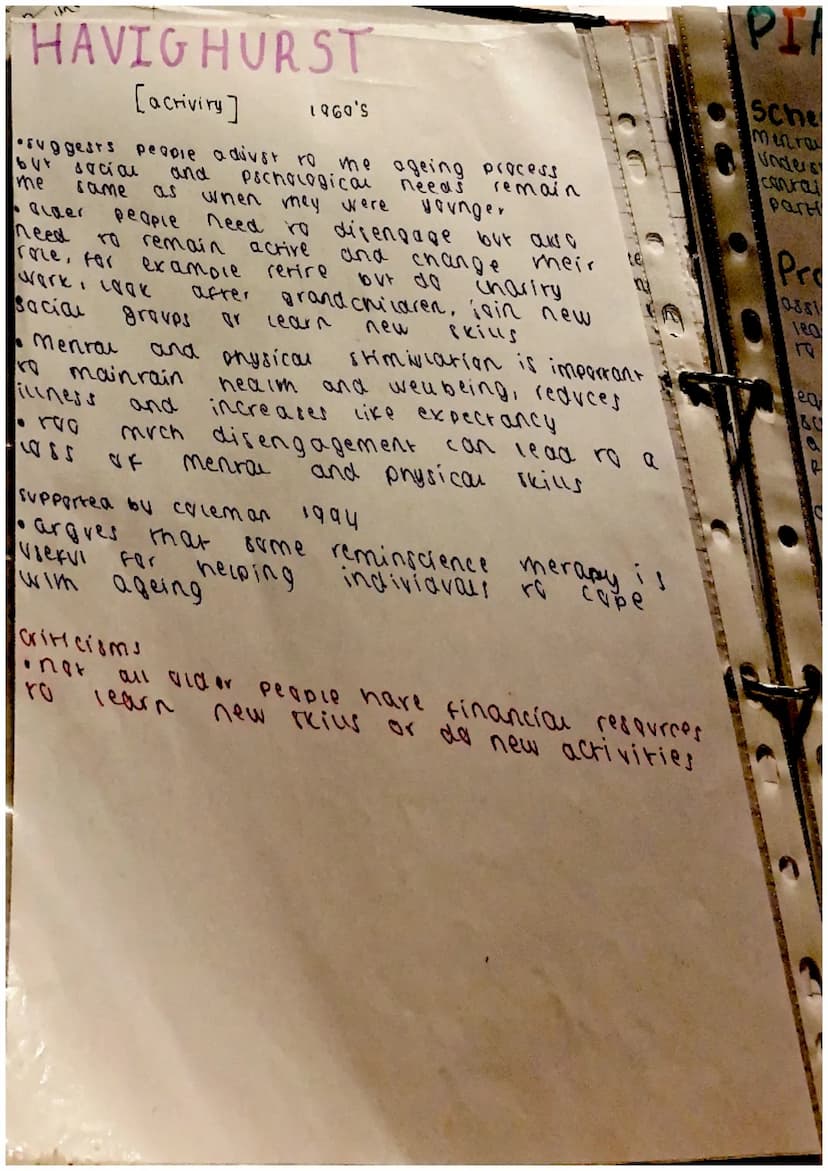 HAVIGHURST
[activity] 1960's
•suggests people adjust to the ageing process
but social and pschological needs remain
the same as when they were younger
•older people need to disengage but also
need to remain active and change their
role, for example retire but do charity
work, look after grandchildren, join new
social groups or learn new skills
•Mental and physical stimulation is important
to maintain health and wellbeing, reduces
illness and increases like expectancy
•too much disengagement can lead to a
loss of mental and physical skills
supported by coleman 1994
•argues that some reminscience therapy is
useful for helping individuals to cope
with ageing
criticisms
•not all older people have financial resources
to learn new skills or do new activities
PIA
Sche
menta
underst
contai
parti
Pro
assi
lea
to